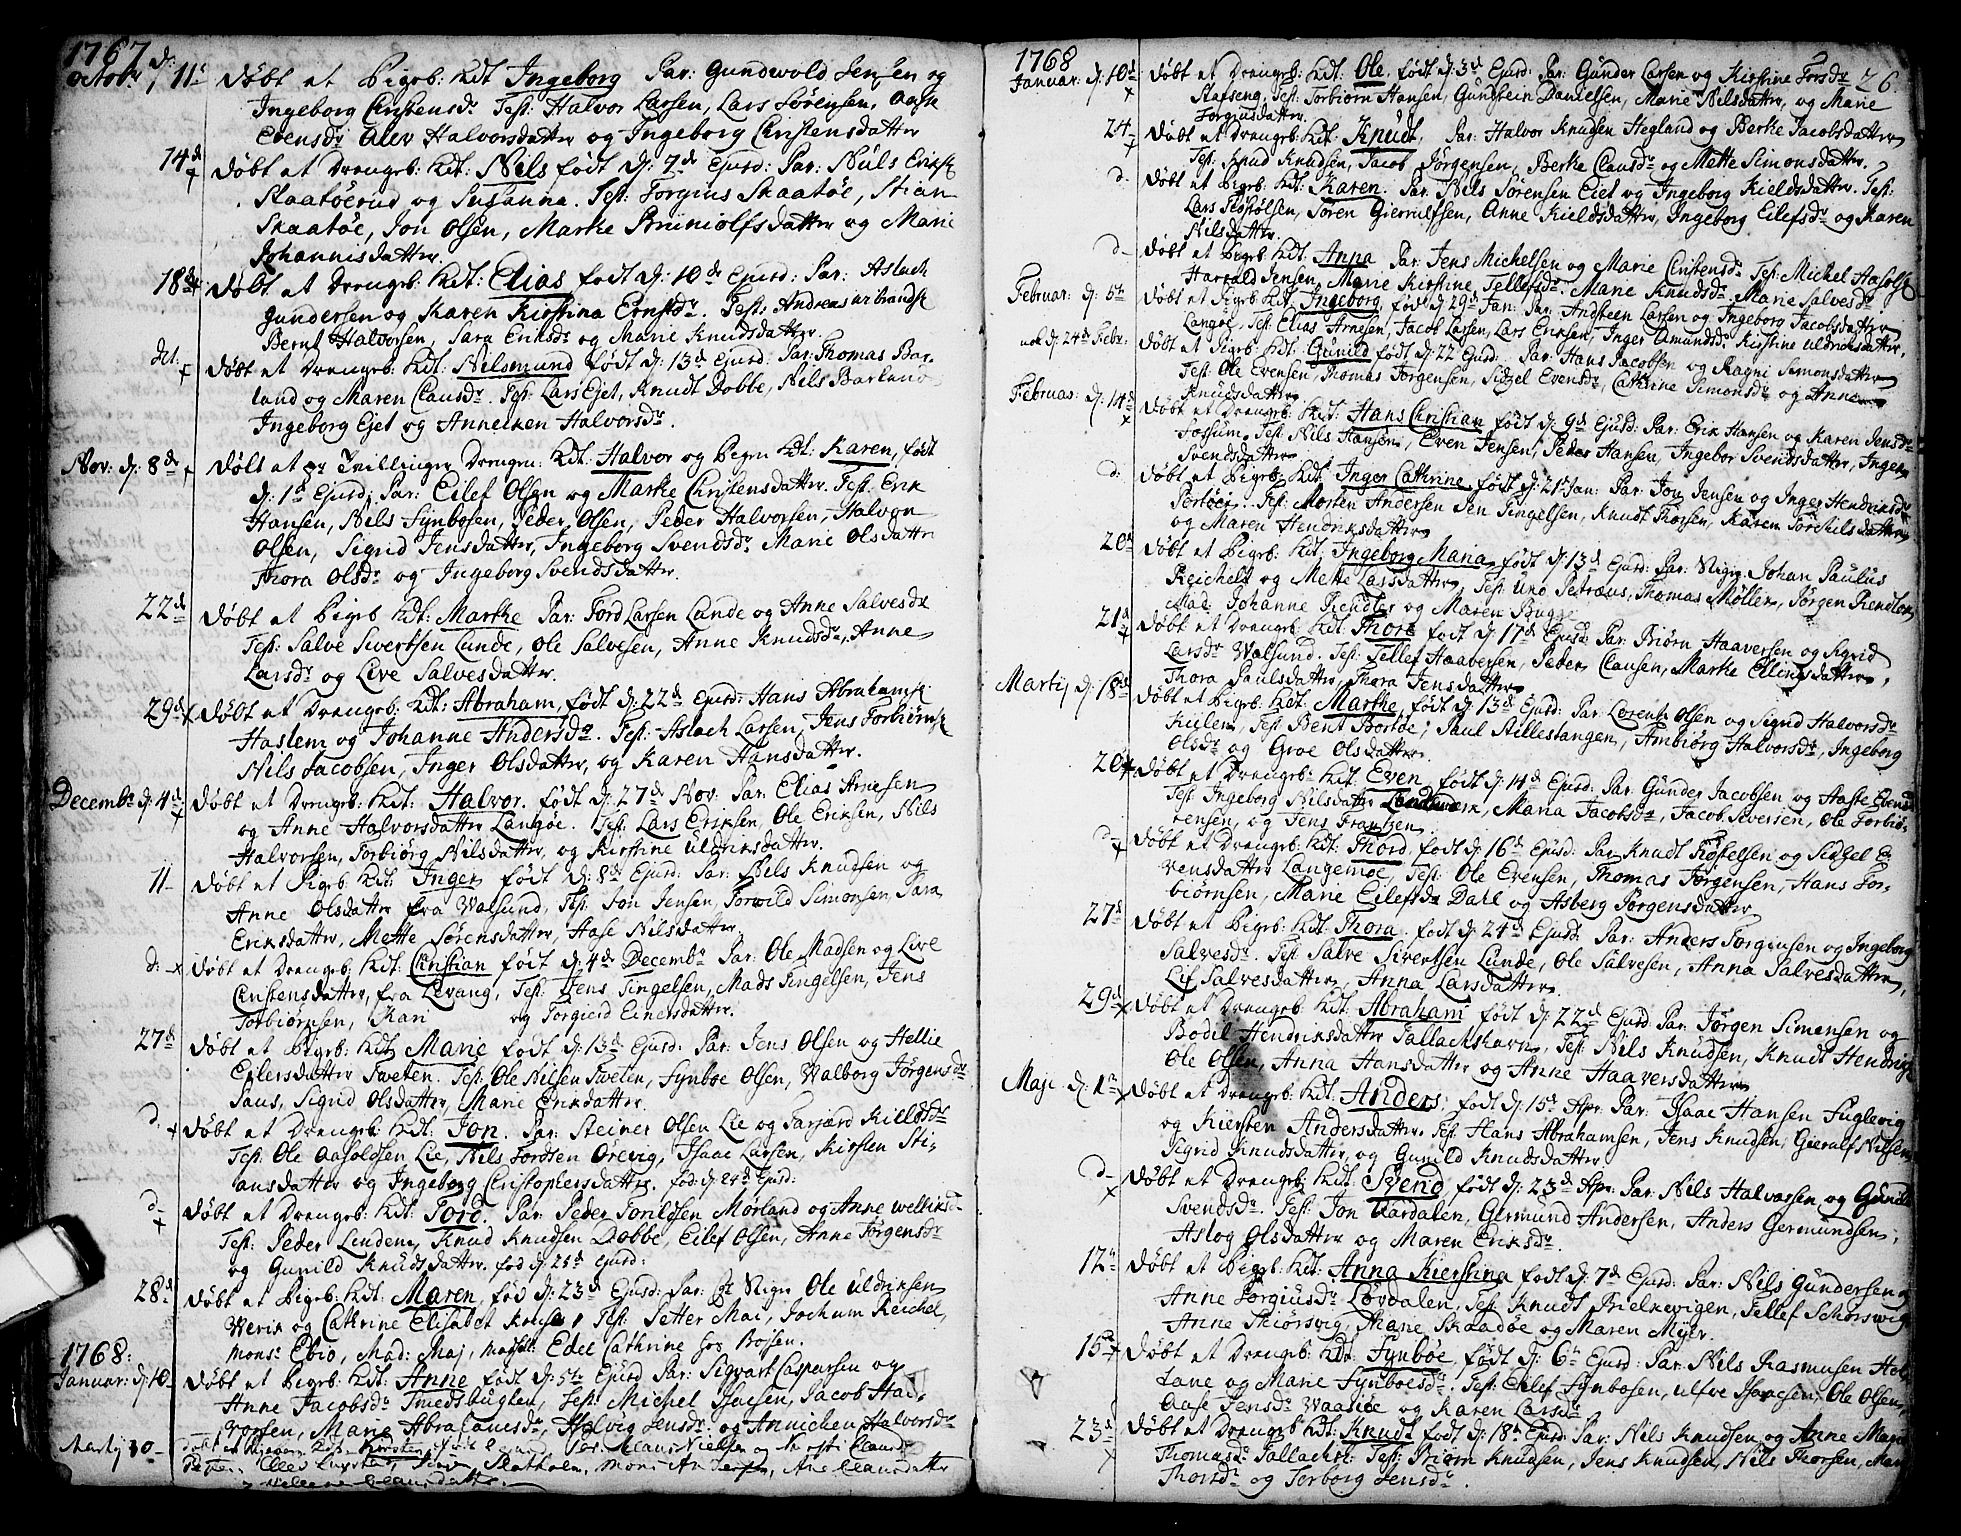 1767 d:
Octobr: 11t døbt et Pigeb: kdt Ingeborg Par: Gundwold Jensen og
Ingeborg Christensdr Test: Halvor Larsen, Lars Sørensen, Aase
Evensdr Alev Halvorsdatter og Ingeborg Christensdatter
14d døbt et Drengeb: kdt: Nils født d: 7de Ejusd: Par: Niels Eriks:
Skaatøerud og Susanna. Test: Jorgius Skaatøe, Stian
Skaatøe, Jon Olsen, Marthe Bruniolfsdatter og Marie
Johannisdatter.
18de døbt et Drengeb: kdt: Elias født d: 10de Ejusd: Par: Aslach
Gundersen og Karen Kirstina Ernstdr. Test: Andreas
Bernt Halvorsen, Sara Eriksdr og Marie Knudsdatter.
dit. døbt et Drengeb: kdt: Nilsmund født d: 13d Ejusd: Par: Thomas Bar-
land og Maren Clausdr. Test: Lars Ejet, Knudt Dobbe, Nils Barland
Ingeborg Ejet og Annecken Halvorsdr.
Nov: d: 8de døbt et pr Tvillinger Drengen: kdt: Halvor og Pigen kdt: Karen, født
d: 1d Ejusd: Par: Eilef Olsen og Marthe Christensdatter. Test: Erik
Hansen, Nils Synbøsen, Peder Olsen, Peder Halvorsen, Halvor
Olsen, Sigrid Jensdatter, Ingeborg Svendsdr Marie Olsdatter
Thora Olsdr og Ingeborg Svendsdatter.
22de døbt et Pigeb kdt: Marthe Par: Tord Larsen Lunde og Anne Salvesdr
Test: Salve Sivertsen Lunde, Ole Salvesen, Anne Knudsdr, Anne
Larsdr og Live Salvesdatter.
29de døbt et Drengeb: kdt: Abraham, født d: 22de Ejusd: Hans Abrahams:
Haslem og Johanne Andersdr. Test: Aslach Larsen, Jens Torbiørns:
Nils Jacobsen, Inger Olsdatter, og Karen Hansdatter.
Decembr d: 4de døbt et Drengeb: kdt: Halvor. født d: 27de Nov. Par: Elias Arnesen
og Anne Halvorsdatter Langøe. Test: Lars Eriksen, Ole Eriksen, Nils
Halvorsen, Torbiørg Nilsdatter, og Kirstine Uldriksdatter.
11 døbt et Pigeb: kdt: Inger født d: 8de Ejusd: Par: Nils Knudsen og
Anne Olsdatter fra Walsund, Test: Jon Jensen, Torwild Simonsen, Sara
Eriksdatter, Mette Sørensdatter, Aase Nilsdatter.
d. døbt et Drengeb: kdt: Christian født d: 4de Decembr Par: Ole Madsen og Live
Christensdatter, fra Levang, Test: Jens Tingelsen, Mads Tingelsen, Jens
Torbiørnsen, Kari og Torgierd Einersdatter.
27de døbt et Pigeb: kdt: Marie født d: 13de Ejusd: Par: Jens Olsen og Hellie
Eilersdatter Tveten. Test: Ole Nilsen Tveten, Synbøe Olsen, Walborg Jørgensdr
Saus, Sigrid Olsdatter, Marie Eriksdatter.
d. døbt et Drengeb: kdt: Jon. Par: Steiner Olsen Lie og Tarjærd Killedsdr
Test: Ole Aasoldsen Lie, Nils Tordsen Ørevig, Isaac Larsen, Kirsten Sti-
ansdatter og Ingeborg Christophersdatter. fød: d: 24d Ejusd:
d døbt et Drengeb: kdt: Tord. Par: Peder Torildsen Mørland og Anne
Test: Peder Lindem, Knud Knudsen Dobbe, Eilef Olsen, Anne Jørgensdr
og Gunild Knudsdatter. fød d: 25d Ejusd:
28d døbt et Pigeb: kdt: Maren, fød d: 23de Ejusd: Par: Ole Uldriksen
Werik og Cathrine Elisabet Kruse, Test: Petter Mai, Jochum Reichel,
Mons: Ebio, Mad: Maj, Edel Cathrine hos Boisen.
1768:
Januar: d: 10 døbt et Pigeb: kdt: Anne født d: 5te Ejusd Par: Sigvart Caspersen og
Anne Jacobsdr Smedsbugten, Test: Michel Isacsen, Jacob Hal-
vorsen, Marie Abrahamsdr, Helvig Jensdr og Annichen Halvorsdr
Martij 10
1768
26
Januar: d. 10d døbt et Drengeb: kdt: Ole. født d: 3d Ejusd. Par: Gunder Larsen og Kirstine Torsdr
Stafseng, Test: Torbiørn Hansen, Gunstein Danielsen, Marie Nilsdatter, og Marie
Jorginsdatter.
24 døbt et Drengeb: kdt: Knudt, Par: Halvor Knudsen Hegland og Berthe Jacobsdatter
Test: Knud Knudsen, Jacob Jørgensen, Berthe Clausdr og Mette Simonsdatter.
d. døbt et Pigeb: kdt: Karen. Par: Nils Sørensen Eiet og Ingeborg Kieldsdatter. Test:
Lars Søren Gierrulfsen, Anne Kieldsdatter, Ingeborg Eilefsdr og Karen
Nilsdatter.
d døbt et Pigeb: kdt: Anna Par: Jens Michelsen og Marie Christensdr Test: Michel
Harrald Jensen, Marie Kirstine Tellefsdr. Marie Knudsdr. Marie Salvesdr.
Februar: d: 5te døbt et Pigeb: kdt: Ingeborg født d: 29de Jan: Par: Andsteen Larsen og Ingeborg Jacobsdatter
Langøe, Test: Elias Arnesen, Jacob Larsen, Lars Eriksen, Inger Amundsdr Kirstine Uldriksdatter.
nok d. 24de Febr: døbt et Pigeb: kdt: Gunild født d: 22 Ejusd: Par: Hans Jacobsen og Ragni Simonsdatter
Test: Ole Evensen, Thomas Jørgensen, Sidzel Evensdr, Cathrine Simonsdr og Anne
Knudsdatter.
Februar: d: 14de døbt et Drengeb: kdt: Hans Christian født d: 9d Ejusd: Par: Erik Hansen og Karen Jensdr
Fossum. Test: Nils Hansen, Even Jensen, Peder Hansen, Ingebor Svendsdatter, Inger
Svendsdatter.
d. døbt et Pigeb: kdt: Inger Cathrine, født d: 21d Jan: Par: Jon Jensen og Inger Hendriksdr
Portøer. Test: Morten Andersen Jen Tingelsen, Knudt Thorsen, Karen Torkildsdatter
og Maren Hendriksdatter
20d døbt et Pigeb: kdt: Ingeborg Maria født d: 13d Ejusd: Par: Johan Paulus
Reichelt og Mette Larsdatter, Test: Uno Petræus, Thomas Møller, Jørgen Rendler,
Mad. Johanne Rendler og Maren Bugge
21d døbt et Drengeb: kdt: Thore født d: 17de Ejusd Par: Biørn Haaversen og Sigrid
Larsdr Walsund. Test: Tellef Haaversen, Peder Clausen, Marthe Ellingsdatter,
Thora Paulsdatter, Thora Jensdatter.
Martij d: 18d døbt et Pigeb: kdt: Marthe, født d: 13d Ejusd: Par: Lorents Olsen og Sigrid Halvorsdr
Kulen, Test: Bent Bortøe, Paul Stillestangen, Ambiørg Halvorsdr, Ingeborg
Olsdr og Groe Olsdatter.
20 døbt et Drengeb: kdt: Even født d: 14de Ejusd Par: Gunder Jacobsen og Aaste Evensdr
Test: Ingeborg Nilsdatter Landwerk, Maria Jacobsdr, Jacob Siversen, Ole Torbiø-
rensen, og Jens Frantsen.
d døbt et Drengeb: kdt: Thord, født d: 16d Ejusd: Par: Knudt og Sidzel E-
vensdatter Langemøe, Test: Ole Evensen, Thomas Jørgensen, Hans Tor-
biørnsen, Marie Eilefsdr Dahl og Asberg Jørgensdatter
27d døbt et Pigeb: kdt: Thora. født d: 24d Ejusd. Par: Anders Torginsen og Ingeborg
Salvesdr. Test Salve Sivertsen Lunde, Ole Salvesen, Anna Salvesdatter,
Lif Salvesdatter, Anna Larsdatter.
29d døbt et Drengeb: kdt: Abraham født d: 22d Ejusd Par: Jørgen Simensen og
Bodil Hendriksdatter Tallackshavn, Test: Nils Knudsen, Knudt Hendriks:
Ole Olsen, Anna Hansdatter og Anne Haaversdatter
Maji d: 1te døbt et Drengeb: kdt: Anders. født d: 15d Apr. Par: Isaac Hansen Fuglevig
og Kiersten Andersdatter. Test Hans Abrahamsen, Jens Knudsen, Gieralf Nilsen
Sigrid Knudsdatter, og Gunild Knudsdatter
d døbt et Drengeb: kdt: Svend født d: 23d Apr: Par: Nils Halvorsen og Gunild
Svendsdr. Test: Jon Aardalen, Germund Andersen, Anders Germundsen,
Aslog Olsdatter og Maren Eriksdr.
12te døbt et Pigeb: kdt: Anna Kierstina født d: 7d Ejusd: Par: Nils Gundersen og
Anne Jorgiusdr Løvdalen, Test: Knudt Brielkevigen, Tellef Schørsvig
Anne Skiørsvig, Marie Skaadøe og Maren Myer.
15de døbt et Drengeb: kdt: Synbøe, født d: 6te Ejusd: Par: Nils Rasmusen Hel-
tane og Marie Synbøesdr. Test: Eilef Synbøsen, Ulfve Isaacsen, Ole Olsen,
Aase Jensdr Waasøe og Karen Larsdr
23d døbt et Drengeb: kdt: Knudt født d: 18de Ejusd: Par: Nils Knudsen og Anne
Thomasdr Tallacks: Test: Biørn Knudsen, Jens Knudsen, Nils Thorsen,
Thorsdr og Torborg Jensdr.